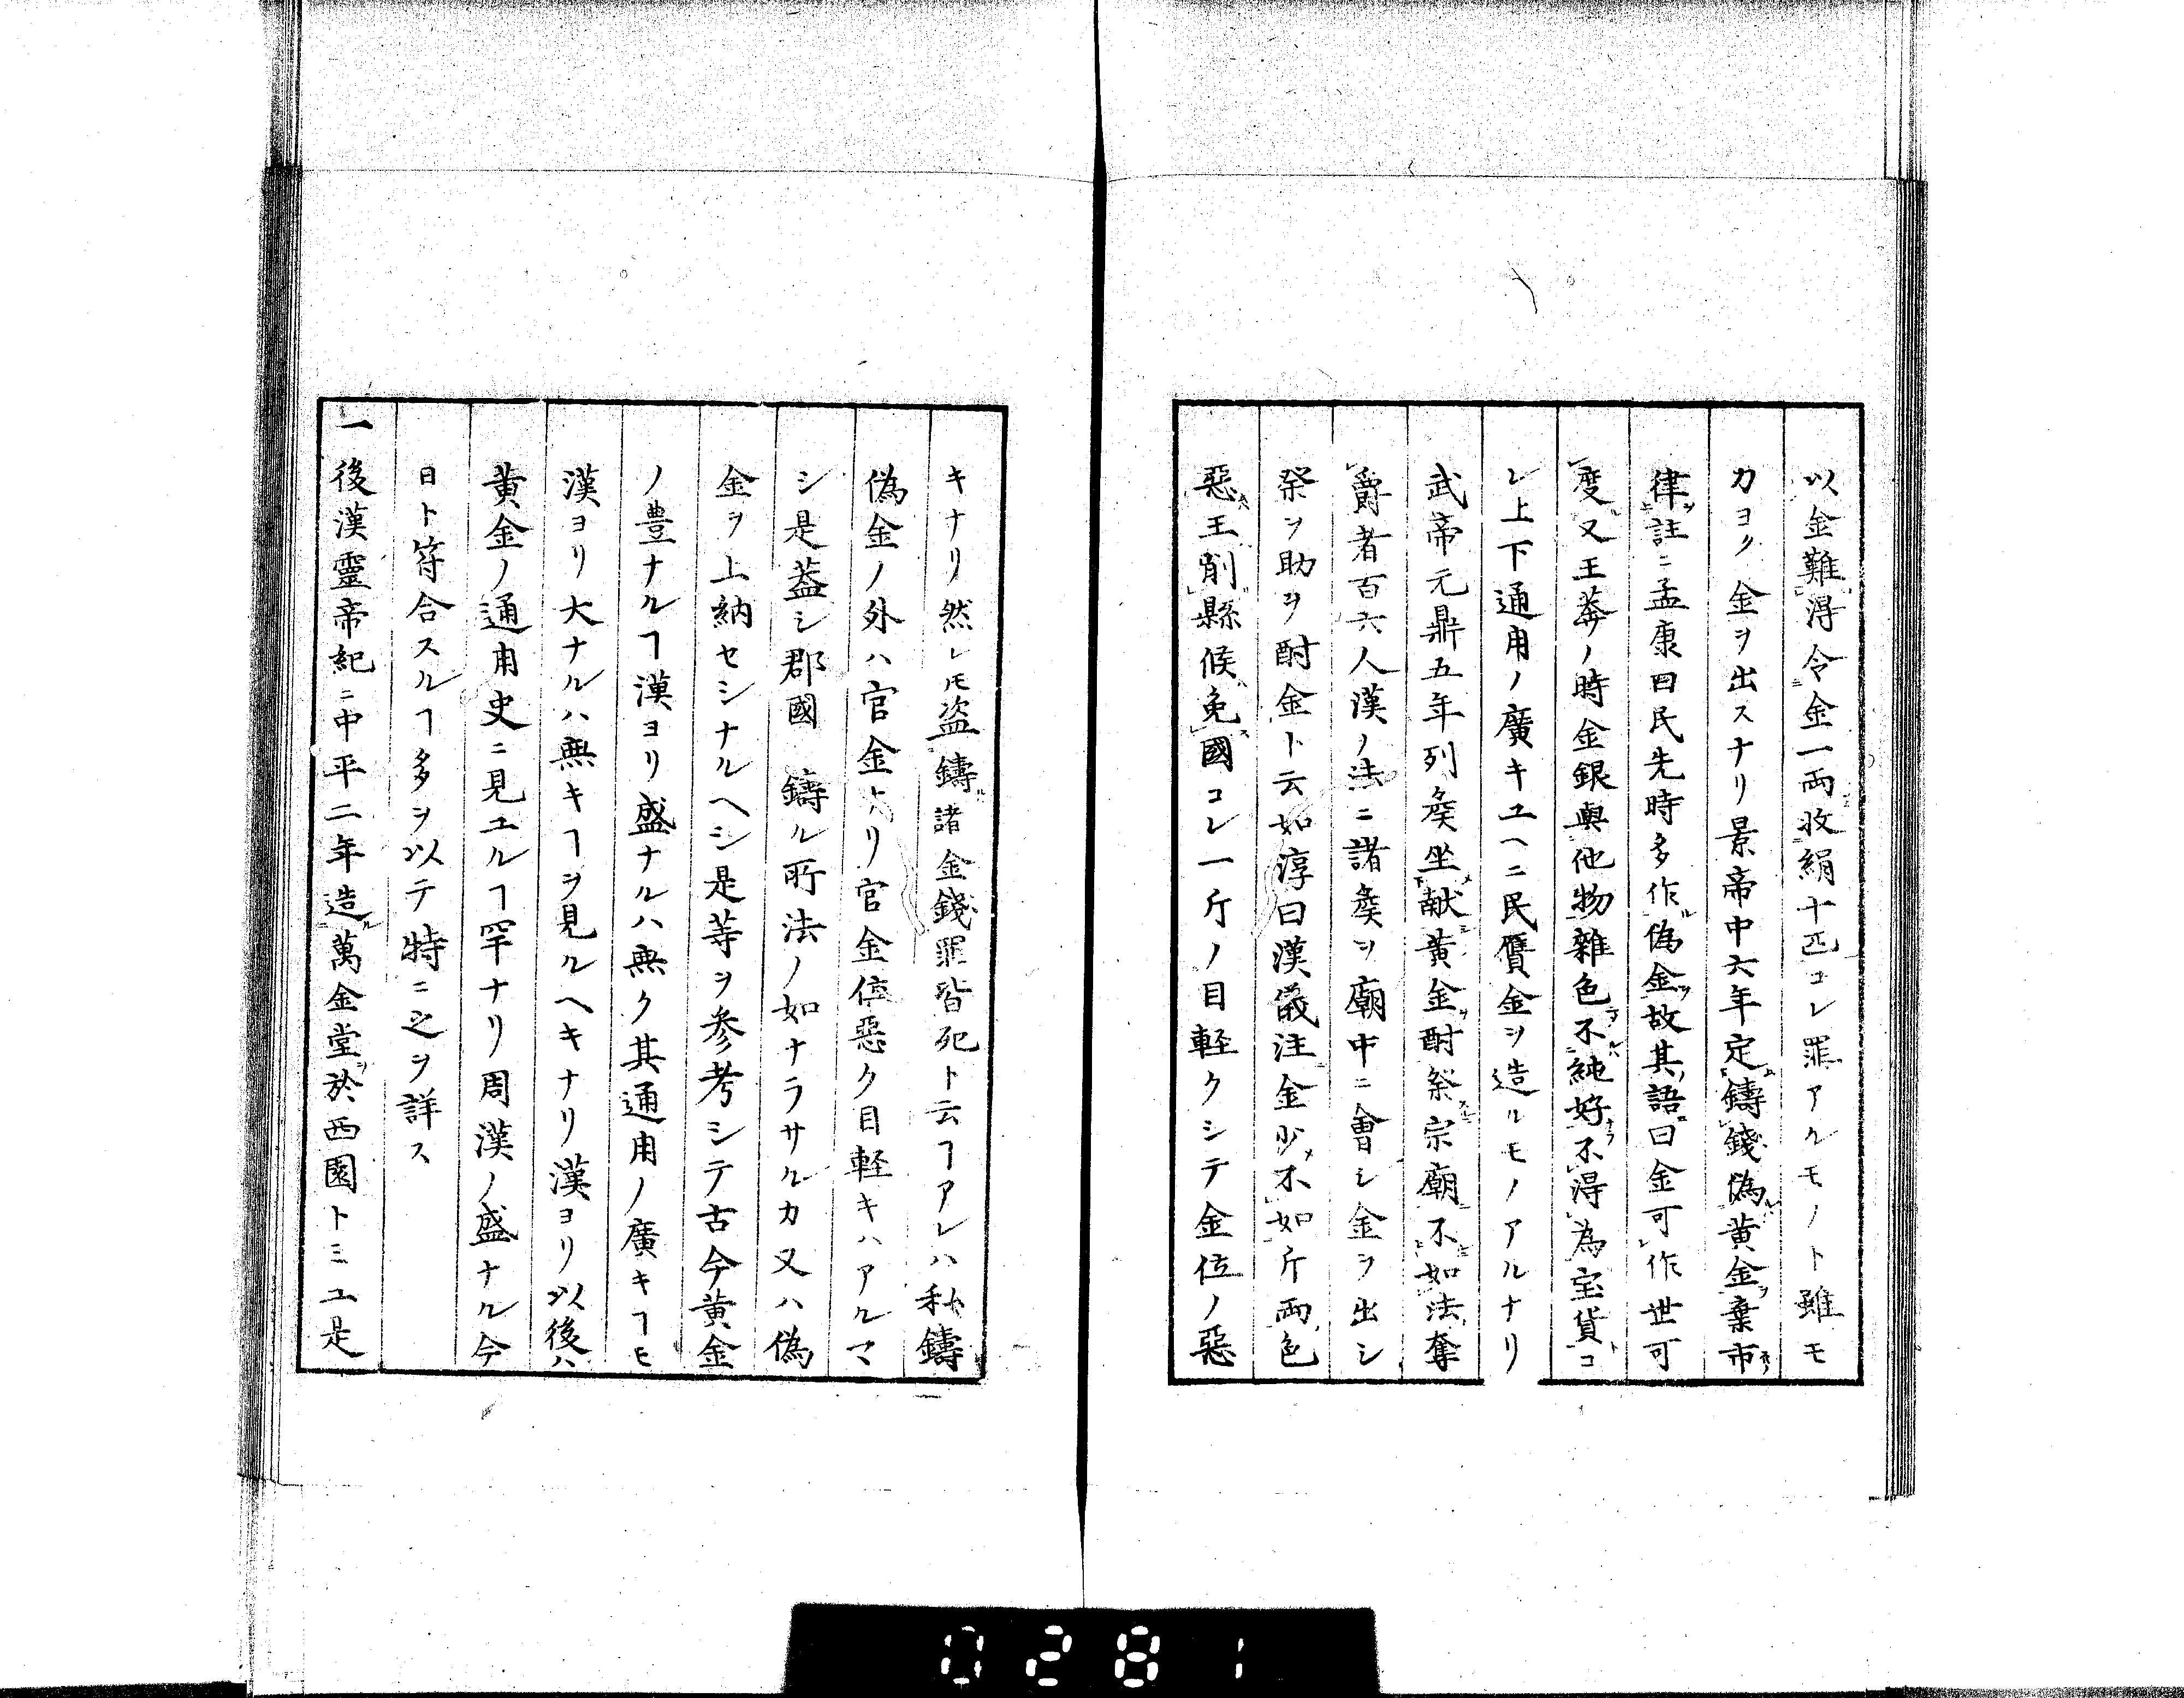 以金難得令金一両收絹十匹コレ罪アルモノト雖モ
カヨク金ヲ出スナリ景帝中六年定鑄錢偽黄金棄市
律註ニ孟康曰民先時多作偽金故其語曰金可作世可
度又王莽ノ時金銀與他物雜色不純好不得為宝貨コ
レ上下通用ノ廣キユヘニ民贋金ヲ造ルモノアルナリ
武帝元鼎五年列矦坐献黄金酎祭宗廟不如法奪
爵者百六人漢ノ法ニ諸矦ヲ廟中ニ會シ金ヲ出シ
祭ヲ助ヲ酎金ト云如淳曰漢儀注金少不如斤両色
惡王削縣候免國コレ一斤ノ目軽クシテ金位ノ惡
キナリ然レ𪜈盗鑄諸金錢罪皆死ト云ヿアレハ私鑄
偽金ノ外ハ官金ヨリ官金位惡ク目軽キハアルマ
シ是蓋シ郡國 鑄ル所法ノ如ナラサルカ又ハ偽
金ヲ上納セシナルヘシ是等ヲ参考シテ古今黄金
ノ豊ナルヿ漢ヨリ盛ナルハ無ク其通用ノ廣キヿモ
漢ヨリ大ナルハ無キヿヲ見ルヘキナリ漢ヨリ以後ハ
黄金ノ通用史ニ見ユルヿ罕ナリ周漢ノ盛ナル今
日ト符合スルヿ多ヲ以テ特ニ之ヲ詳ス
一後漢靈帝紀ニ中平二年造萬金堂於西園トミユ是
0281